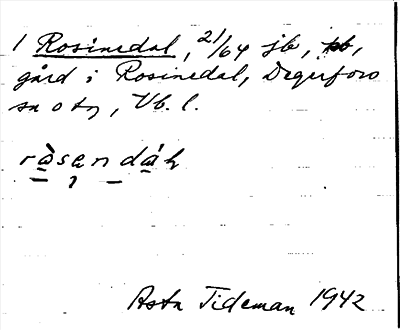 1 Rosinedal, 21/64 jb,
gård i Rosinedal, Degerfors
sn o tg, Vb. l.
ràsendáh
Asta Tideman 1942